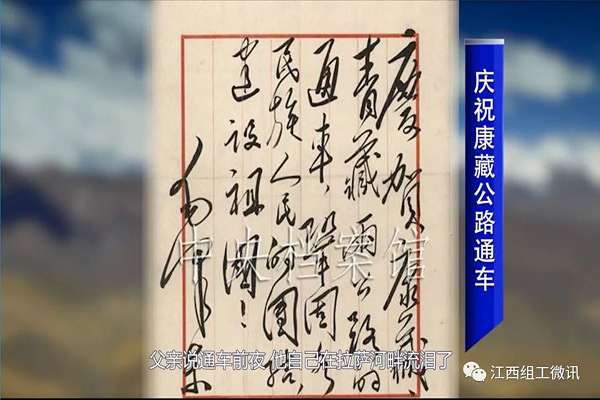 慶賀康藏、
青藏兩公路的
通車，鞏固各
民族人民的團結，
建設祖國！
毛澤東
庆祝康藏公路通车
中央档案馆
父亲说通车前夜 他自己在拉萨河畔流泪了
江西组工微讯